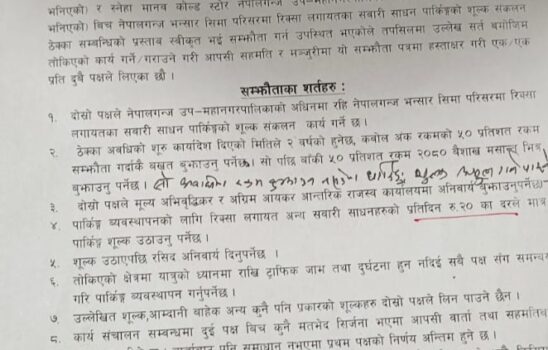 भनिएको) र स्नेहा मानव कोल्ड स्टोर नेपालगन्ज
भनिएको) बिच नेपालगन्ज भन्सार सिमा परिसरमा रिक्सा लगायतका सवारी साधन पार्किङ्गको शूल्क संकलन
ठेक्का सम्बन्धिको प्रस्ताब स्वीकृत भई सम्झौता गर्न उपस्थित भएकोले तपसिलमा उल्लेख सर्त बमोजिम
तोकिएको कार्य गर्ने/गराउने गरी आपसी सहमति र मञ्जुरीमा यो सम्झौता पत्रमा हस्ताक्षर गरी एक/एक
प्रति दुबै पक्षले लिएका छौ ।
सम्झौताका शर्तहरु :
१. दोस्रो पक्षले नेपालगन्ज उप-महानगरपालिकाको अधिनमा रहि नेपालगन्ज भन्सार सिमा परिसरमा रिक्सा
लगायतका सवारी साधन पार्किङ्गको शूल्क संकलन कार्य गर्ने छ ।
२. ठेक्का अवधिको शुरु कार्यादेश दिएको मितिले २ वर्षको हुनेछ, कबोल अंक रकमको ५० प्रतिशत रकम
सम्झौता गर्दाकै बखत बुझाउनु पर्नेछ। सो पछि बाँकी ५० प्रतिशत रकम २०८० बैशाख मसान्त भित्र
बुझाउनु पर्नेछ ।
३. दोस्रो पक्षले मूल्य अभिवृद्धिकर र अग्रिम आयकर आन्तरिक राजस्व कार्यालयमा अनिवार्य बुझाउनुपर्नेछ।
४. पार्किङ्ग व्यवस्थापनको लागि रिक्सा लगायत अन्य सवारी साधनहरुको प्रतिदिन रु.२० का दरले मात्र
पार्किङ्ग शूल्क उठाउनु पर्नेछ ।
५. शूल्क उठाएपछि रसिद अनिवार्य दिनुपर्नेछ ।
६. तोकिएको क्षेत्रमा यात्रुको ध्यानमा राखि ट्राफिक जाम तथा दुर्घटना हुन नदिई सबै पक्ष संग समन्वय
गरि पार्किङ्ग व्यवस्थापन गर्नुपर्नेछ ।
७. उल्लेखित शूल्क,आम्दानी बाहेक अन्य कुनै पनि प्रकारको शूल्कहरु दोस्रो पक्षले लिन पाउने छैन ।
८. कार्य संचालन सम्बन्धमा दुई पक्ष बिच कुनै मतभेद सिर्जना भएमा आपसी वार्ता तथा सहमतिबाट
पनि समाधान नभएमा प्रथम पक्षको निर्णय अन्तिम हुने छ ।